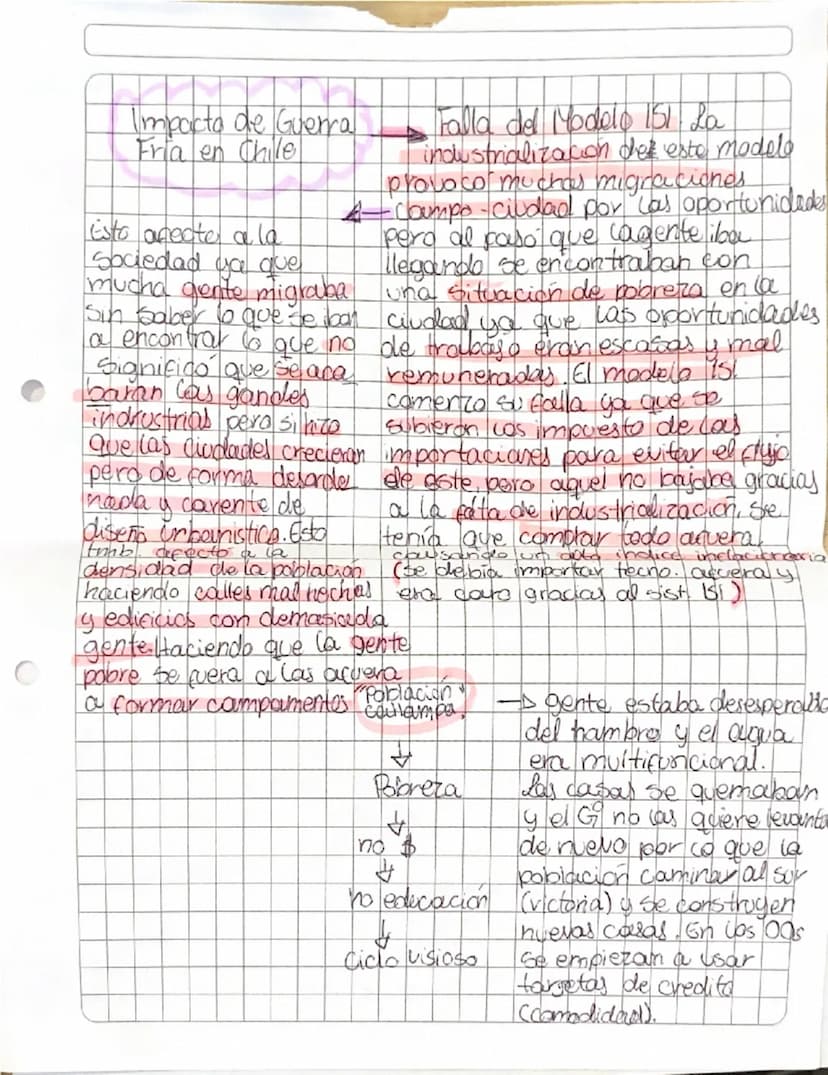 Impacto de Guerra
Fría en Chile
Falla del Modelo ISI: La
industrialización del este modelo
provocó muchas migraciones
campo-ciudad por las oportunidades
pero al paso que la gente iba
llegando se encontraban con
una situación de pobreza en la
ciudad ya que las oportunidades
de trabajo eran escasas y mal
remuneradas. El modelo ISI
comenzo su falla ya que se
subieron los impuesto de las
importaciones para evitar el flujo
de este, pero aquel no bajaba gracias
a la falta de industrialización. Se
tenía que comprar todo afuera,
causando un alto indice inflacionario
(se debía importar tecno. afuera y
era caro gracias al sist. ISI)
Esto afecto a la
sociedad ya que
mucha gente migraba
sin saber lo que se iban
a encontrar lo que no
significó que se aca
baran las gandes
indrustrias pero si hizo
que las ciudades crecieran
pero de forma desorde
nada y carente de
diseño urbanistica. Esto
tmb. afecto a la
densidad de la población
haciendo calles mal hechas
y edificios con demasiada
gente. Haciendo que la gente
pobre se fuera a las afuera
a formar campamentos "Población
callampa"
↓
Pobreza
↓
no $
↓
no educación
↓
Ciclo visioso
→ gente estaba desesperada
del hambre y el agua
era multifuncional.
Las casas se quemaban
y el G° no las quiere levanta
de nuevo por lo que la
población caminar al sur
(victoria) y se construyen
nuevas casas. En los 00s
se empiezan a usar
targetas de credito
(comodidad).